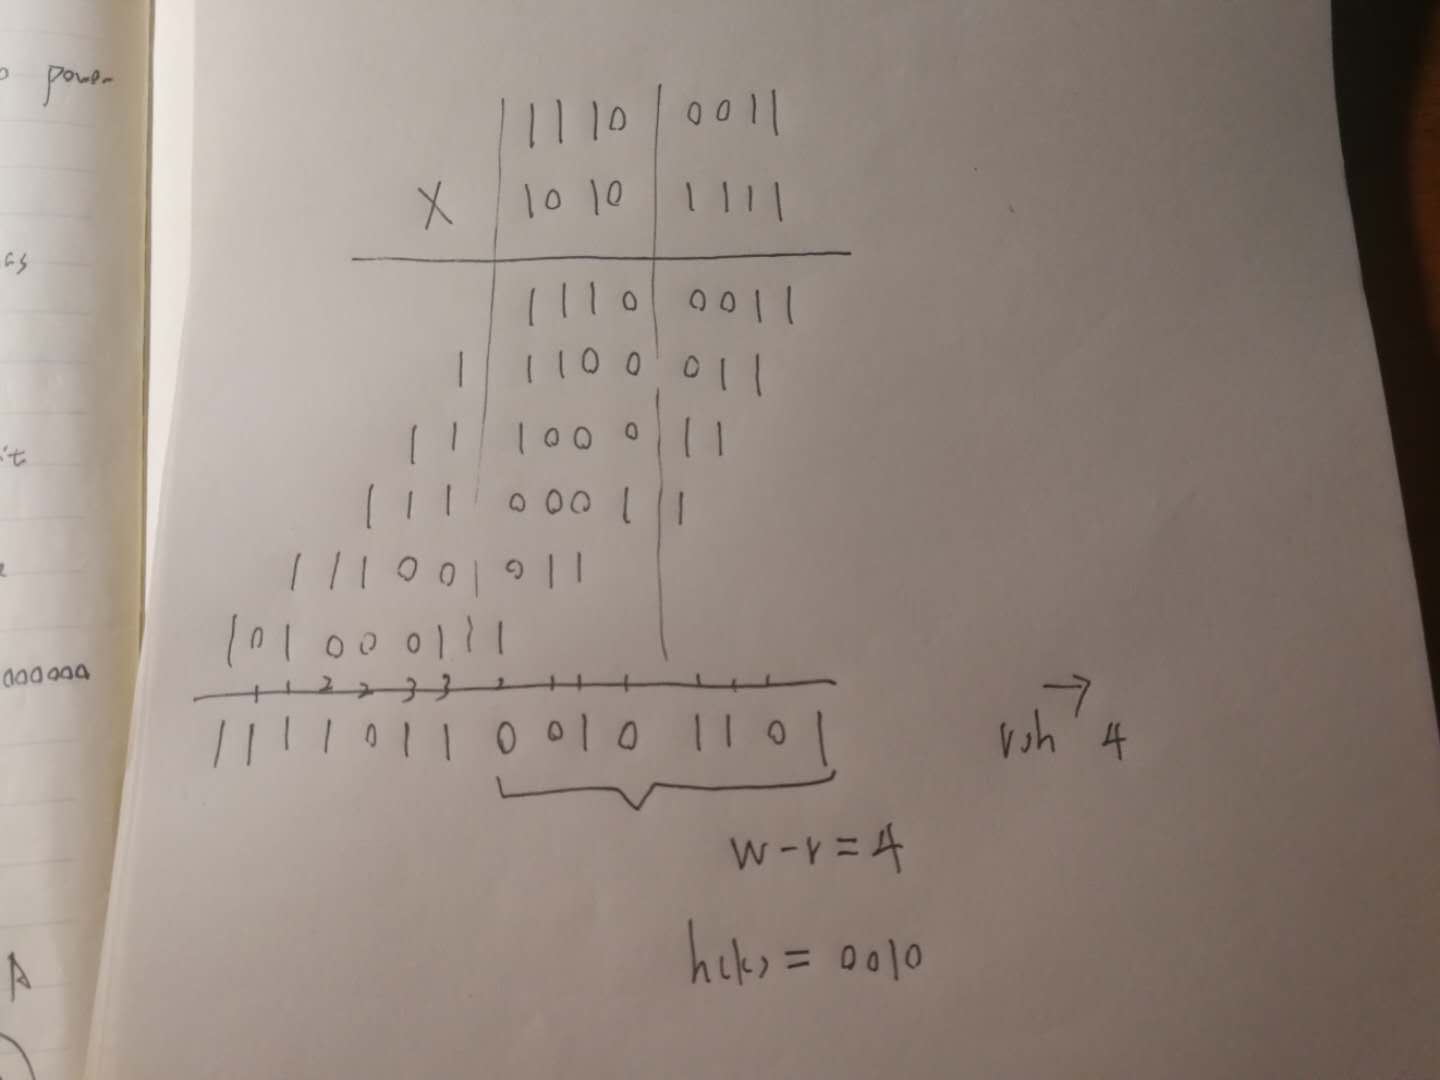 power
1110 0011
X 1010 1111
1110 0011
1 1100 011
11 1000 11
111 0001 1
111001011
101000111
1 1 2 2 3 3 2 1 1 1 1 1 1
1111011 0010 1101
rsh → 4
w-r=4
h(k) = 0010
it
000000
A